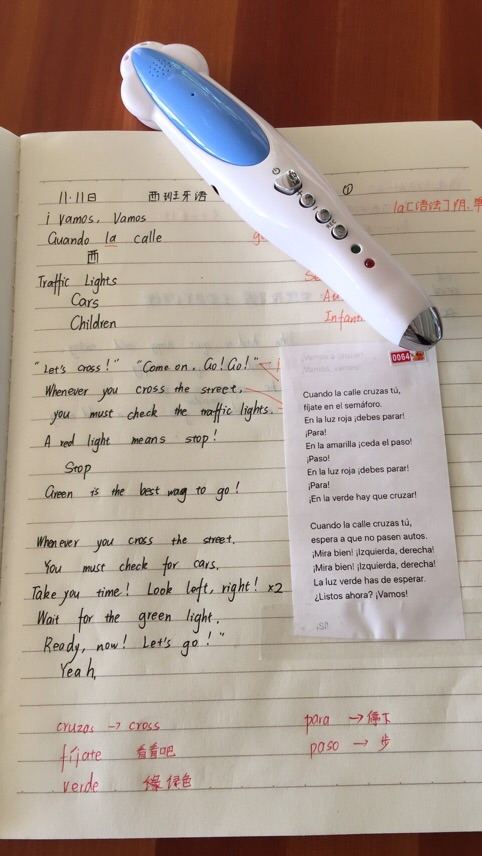 11.11日 西班牙语 ①
la[语法]阴.
¡ Vamos, Vamos
Cuando la calle
西
Traffic Lights
Cars
Children
Infant
"Let's cross!" "Come on. Go! Go!"
Whenever you cross the street.
you must check the traffic lights.
A red light means stop!
Stop
Green is the best wag to go!
Whenever you cross the street.
You must check for cars.
Take you time! Look left, right! ×2
Wait for the green light.
Ready, now! Let's go!"
Yeah,
Vamos a cruzar!
Vamos, vamos!
0064
Cuando la calle cruzas tú,
fíjate en el semáforo.
En la luz roja ¡debes parar!
¡Para!
En la amarilla ¡ceda el paso!
¡Paso!
En la luz roja ¡debes parar!
¡Para!
¡En la verde hay que cruzar!
Cuando la calle cruzas tú,
espera a que no pasen autos.
¡Mira bien! ¡Izquierda, derecha!
¡Mira bien! ¡Izquierda, derecha!
La luz verde has de esperar.
¿Listos ahora? ¡Vamos!
¡Sí!
cruzas → cross
fíjate 看看吧
verde 绿色
para → 停下
paso → 步